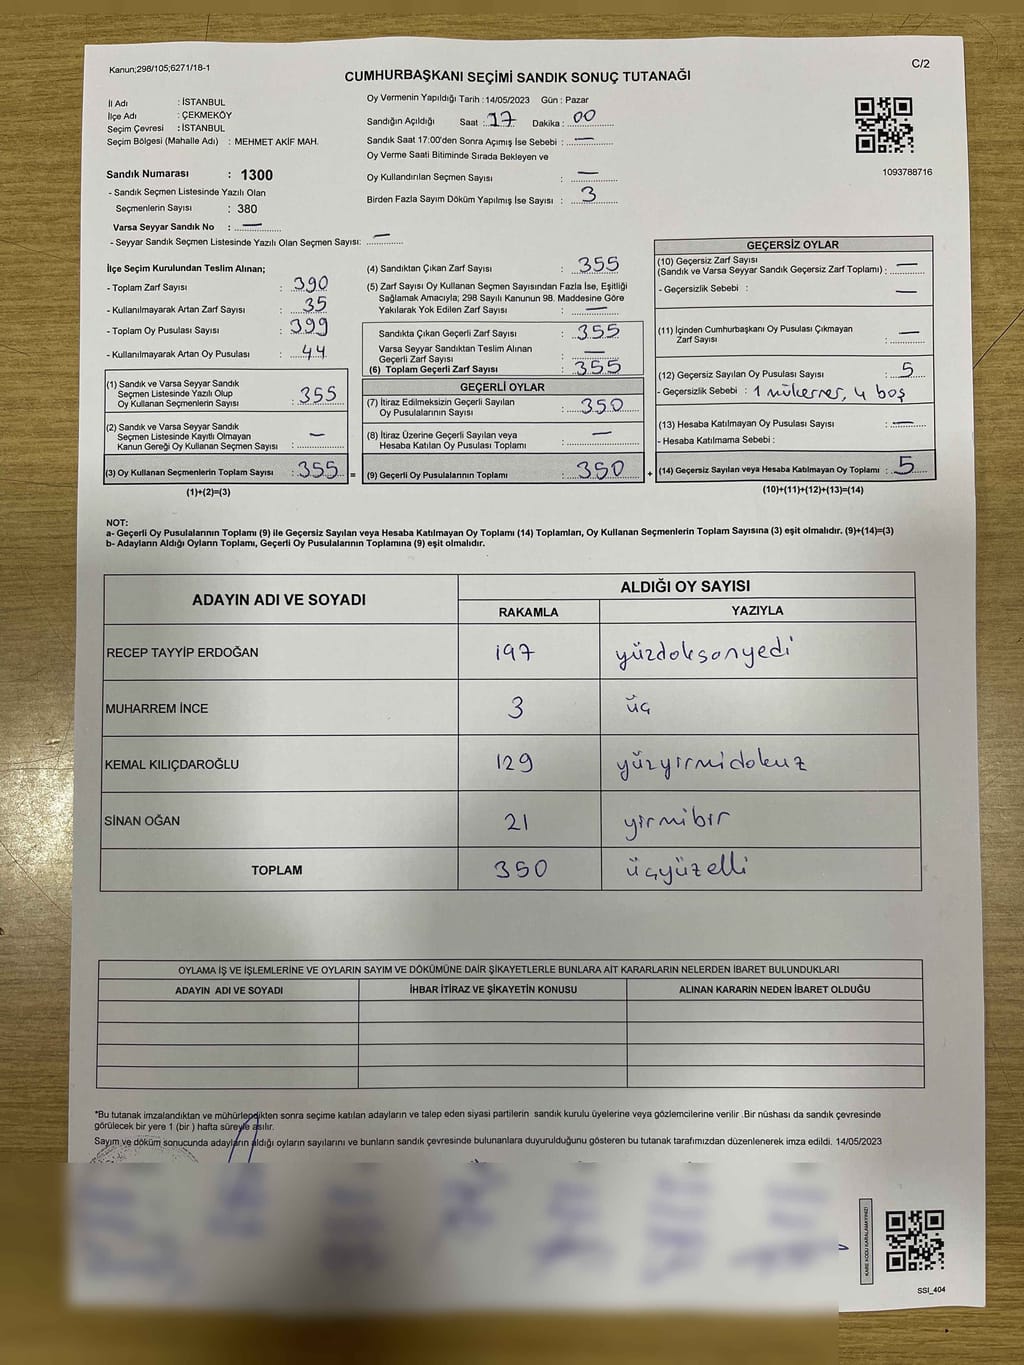 Kanun;298/105;6271/18-1
C/2
CUMHURBAŞKANI SEÇİMİ SANDIK SONUÇ TUTANAĞI
İl Adı : İSTANBUL
İlçe Adı : ÇEKMEKÖY
Seçim Çevresi : İSTANBUL
Seçim Bölgesi (Mahalle Adı) : MEHMET AKİF MAH.
Sandık Numarası : 1300
- Sandık Seçmen Listesinde Yazılı Olan
Seçmenlerin Sayısı : 380
Varsa Seyyar Sandık No : —
- Seyyar Sandık Seçmen Listesinde Yazılı Olan Seçmen Sayısı: —
Oy Vermenin Yapıldığı Tarih :14/05/2023 Gün : Pazar
Sandığın Açıldığı Saat : 17 Dakika : 00
Sandık Saat 17:00'den Sonra Açımış İse Sebebi : —
Oy Verme Saati Bitiminde Sırada Bekleyen ve
Oy Kullandırılan Seçmen Sayısı : —
Birden Fazla Sayım Döküm Yapılmış İse Sayısı : 3
1093788716
İlçe Seçim Kurulundan Teslim Alınan;
- Toplam Zarf Sayısı : 390
- Kullanılmayarak Artan Zarf Sayısı : 35
- Toplam Oy Pusulası Sayısı : 399
- Kullanılmayarak Artan Oy Pusulası : 44
(1) Sandık ve Varsa Seyyar Sandık
Seçmen Listesinde Yazılı Olup
Oy Kullanan Seçmenlerin Sayısı : 355
(2) Sandık ve Varsa Seyyar Sandık
Seçmen Listesinde Kayıtlı Olmayan
Kanun Gereği Oy Kullanan Seçmen Sayısı : —
(3) Oy Kullanan Seçmenlerin Toplam Sayısı : 355 =
(1)+(2)=(3)
(4) Sandıktan Çıkan Zarf Sayısı : 355
(5) Zarf Sayısı Oy Kullanan Seçmen Sayısından Fazla İse, Eşitliği
Sağlamak Amacıyla; 298 Sayılı Kanunun 98. Maddesine Göre
Yakılarak Yok Edilen Zarf Sayısı : —
Sandıkta Çıkan Geçerli Zarf Sayısı : 355
Varsa Seyyar Sandıktan Teslim Alınan
Geçerli Zarf Sayısı : —
(6) Toplam Geçerli Zarf Sayısı : 355
GEÇERLİ OYLAR
(7) İtiraz Edilmeksizin Geçerli Sayılan
Oy Pusulalarının Sayısı : 350
(8) İtiraz Üzerine Geçerli Sayılan veya
Hesaba Katılan Oy Pusulası Toplamı : —
(9) Geçerli Oy Pusulalarının Toplamı : 350 +
GEÇERSİZ OYLAR
(10) Geçersiz Zarf Sayısı
(Sandık ve Varsa Seyyar Sandık Geçersiz Zarf Toplamı) : —
- Geçersizlik Sebebi : —
(11) İçinden Cumhurbaşkanı Oy Pusulası Çıkmayan
Zarf Sayısı : —
(12) Geçersiz Sayılan Oy Pusulası Sayısı : 5
- Geçersizlik Sebebi : 1 mükerrer, 4 boş
(13) Hesaba Katılmayan Oy Pusulası Sayısı : —
- Hesaba Katılmama Sebebi :
(14) Geçersiz Sayılan veya Hesaba Katılmayan Oy Toplamı : 5
(10)+(11)+(12)+(13)=(14)
NOT:
a- Geçerli Oy Pusulalarının Toplamı (9) ile Geçersiz Sayılan veya Hesaba Katılmayan Oy Toplamı (14) Toplamları, Oy Kullanan Seçmenlerin Toplam Sayısına (3) eşit olmalıdır. (9)+(14)=(3)
b- Adayların Aldığı Oyların Toplamı, Geçerli Oy Pusulalarının Toplamına (9) eşit olmalıdır.
ADAYIN ADI VE SOYADI ALDIĞI OY SAYISI
RAKAMLA YAZIYLA
RECEP TAYYİP ERDOĞAN 197 yüzdoksanyedi
MUHARREM İNCE 3 üç
KEMAL KILIÇDAROĞLU 129 yüzyirmidokuz
SİNAN OĞAN 21 yirmibir
TOPLAM 350 üçyüzelli
OYLAMA İŞ VE İŞLEMLERİNE VE OYLARIN SAYIM VE DÖKÜMÜNE DAİR ŞİKAYETLERLE BUNLARA AİT KARARLARIN NELERDEN İBARET BULUNDUKLARI
ADAYIN ADI VE SOYADI İHBAR İTİRAZ VE ŞİKAYETİN KONUSU ALINAN KARARIN NEDEN İBARET OLDUĞU
*Bu tutanak imzalandıktan ve mühürlendikten sonra seçime katılan adayların ve talep eden siyasi partilerin sandık kurulu üyelerine veya gözlemcilerine verilir .Bir nüshası da sandık çevresinde
görülecek bir yere 1 (bir ) hafta süreyle asılır.
Sayım ve döküm sonucunda adayların aldığı oyların sayılarını ve bunların sandık çevresinde bulunanlara duyurulduğunu gösteren bu tutanak tarafımızdan düzenlenerek imza edildi. 14/05/2023
KARE KODU KARALAMAYINIZ!
SSI_404